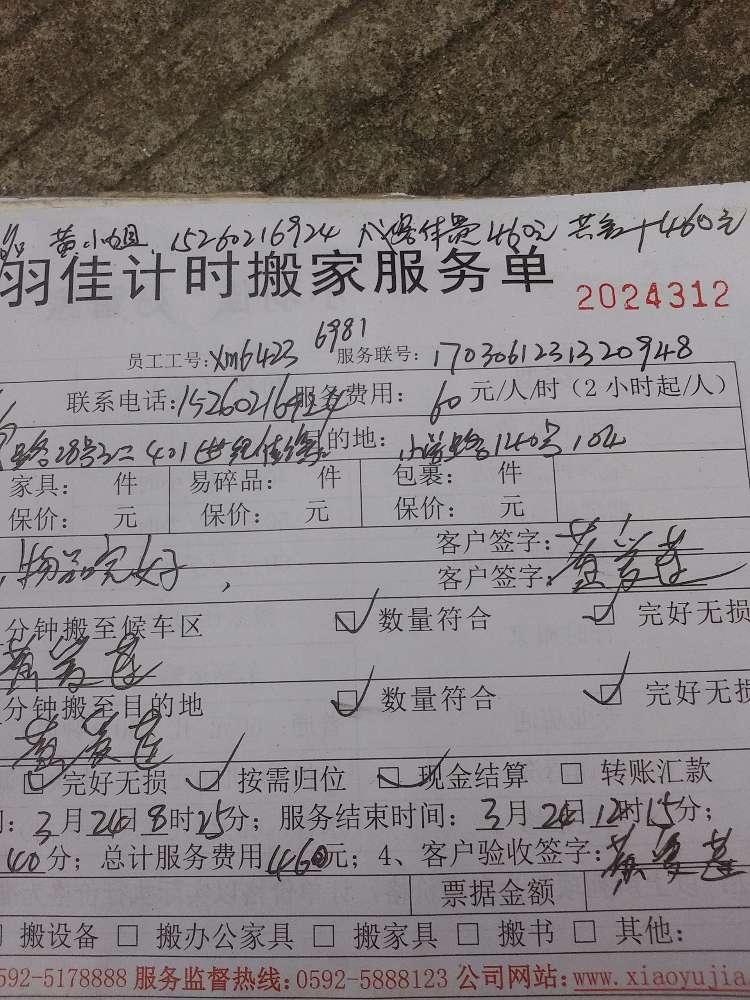 黄小姐 15260216924 人保体费460元 共 460元
羽佳计时搬家服务单 2024312
员工工号:xm6423 6981 服务联号:1703061231320948
联系电话:15260216924 服务费用: 60 元/人/时（2小时起/人）
路28号之二401（世纪佳缘） 目的地: 小学路140号104
家具: 件 易碎品: 件 包裹: 件
保价: 元 保价: 元 保价: 元
物品完好， 客户签字:
客户签字: 黄爱莲
分钟搬至候车区 ☑ 数量符合 ☑ 完好无损
黄爱莲
分钟搬至目的地 ☑ 数量符合 ☑ 完好无损
黄爱莲
☑ 完好无损 ☑ 按需归位 ☑ 现金结算 □ 转账汇款
: 3月24日8时25分; 服务结束时间: 3月24日12时15分;
40分; 总计服务费用460元; 4、客户验收签字: 黄爱莲
票据金额
□ 搬设备 □ 搬办公家具 □ 搬家具 □ 搬书 □ 其他:
592-5178888 服务监督热线:0592-5888123 公司网站:www.xiaoyujia